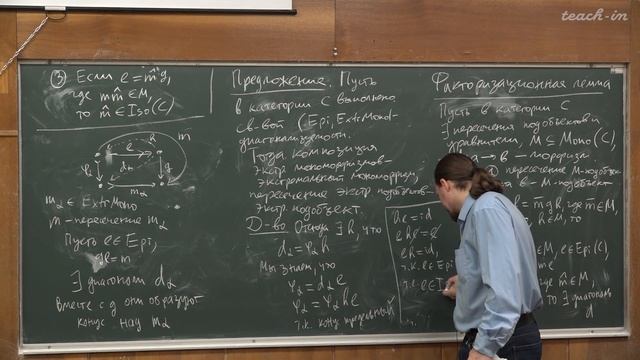 teach-in
③ Если e = m̂g,
где m m̂ ∈ M,
то m̂ ∈ Iso(C)
h
m
e
φ₂
d₂
g
m₂
m₂ ∈ ExtrMono
m - пересечение m₂
Пусть e ∈ Epi,
ge = m
∃ диагональ d₂
Вместе с g они образуют
конус над m₂
Предложение. Пусть
в категории C выполнено
св-во (Epi, ExtrMono)-
диагонализуемости.
Тогда композиция
экстр. мономорфизмов -
экстремальный мономорфизм,
пересечение экстр. подобъектов -
экстр. подобъект.
Д-во Отсюда ∃ h, что
d₂ = φ₂h
Мы знаем, что
φ₂ = d₂e
φ₂ = φ₂he
т.к. конус предельный
he = id
ehe = e
eh = id,
т.к. e ∈ Epi
Факторизационная лемма
Пусть в категории C
∃ пересечения подобъектов и
уравнители, M ⊆ Mono(C),
→ B - морфизм.
пересечение M-подобъек
B - M-подобъект
= m̄g, где m̄ ∈ M,
∈ M, то
∈ M, e ∈ Epi(C),
где m̄ ∈ M,
то ∃ диагональ
d